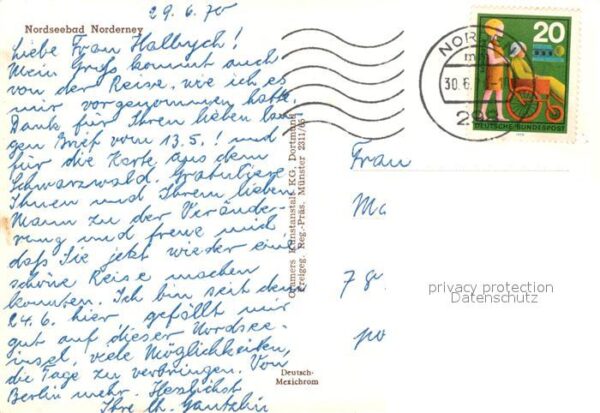 29.6.70
Nordseebad Norderney
Liebe Frau Halbych!
Mein Gruß kommt auch
von der Reise, wie ich es
mir vorgenommen hatte.
Dank für Ihren lieben lan-
gen Brief vom 13.5.! und
für die Karte aus dem
Schwarzwald. Gratuliere
Ihnen und Ihrem lieben
Mann zu der Verände-
rung und freue mich
daß Sie jetzt wieder eine
schöne Reise machen
konnten. Ich bin seit dem
24.6. hier, gefällt mir
gut auf dieser Nordsee-
insel, viele Möglichkeiten,
die Tage zu verbringen. Von
Berlin mehr. Herzlichst
Ihre Ch.
Cramers Kunstanstalt KG, Dortmund
Freigeg. Reg.-Präs. Münster 2311/65
Deutsch-
Mexichrom
NORD
30.6.
298
20
DEUTSCHE BUNDESPOST
Frau
Ma
7
po
privacy protection
Datenschutz